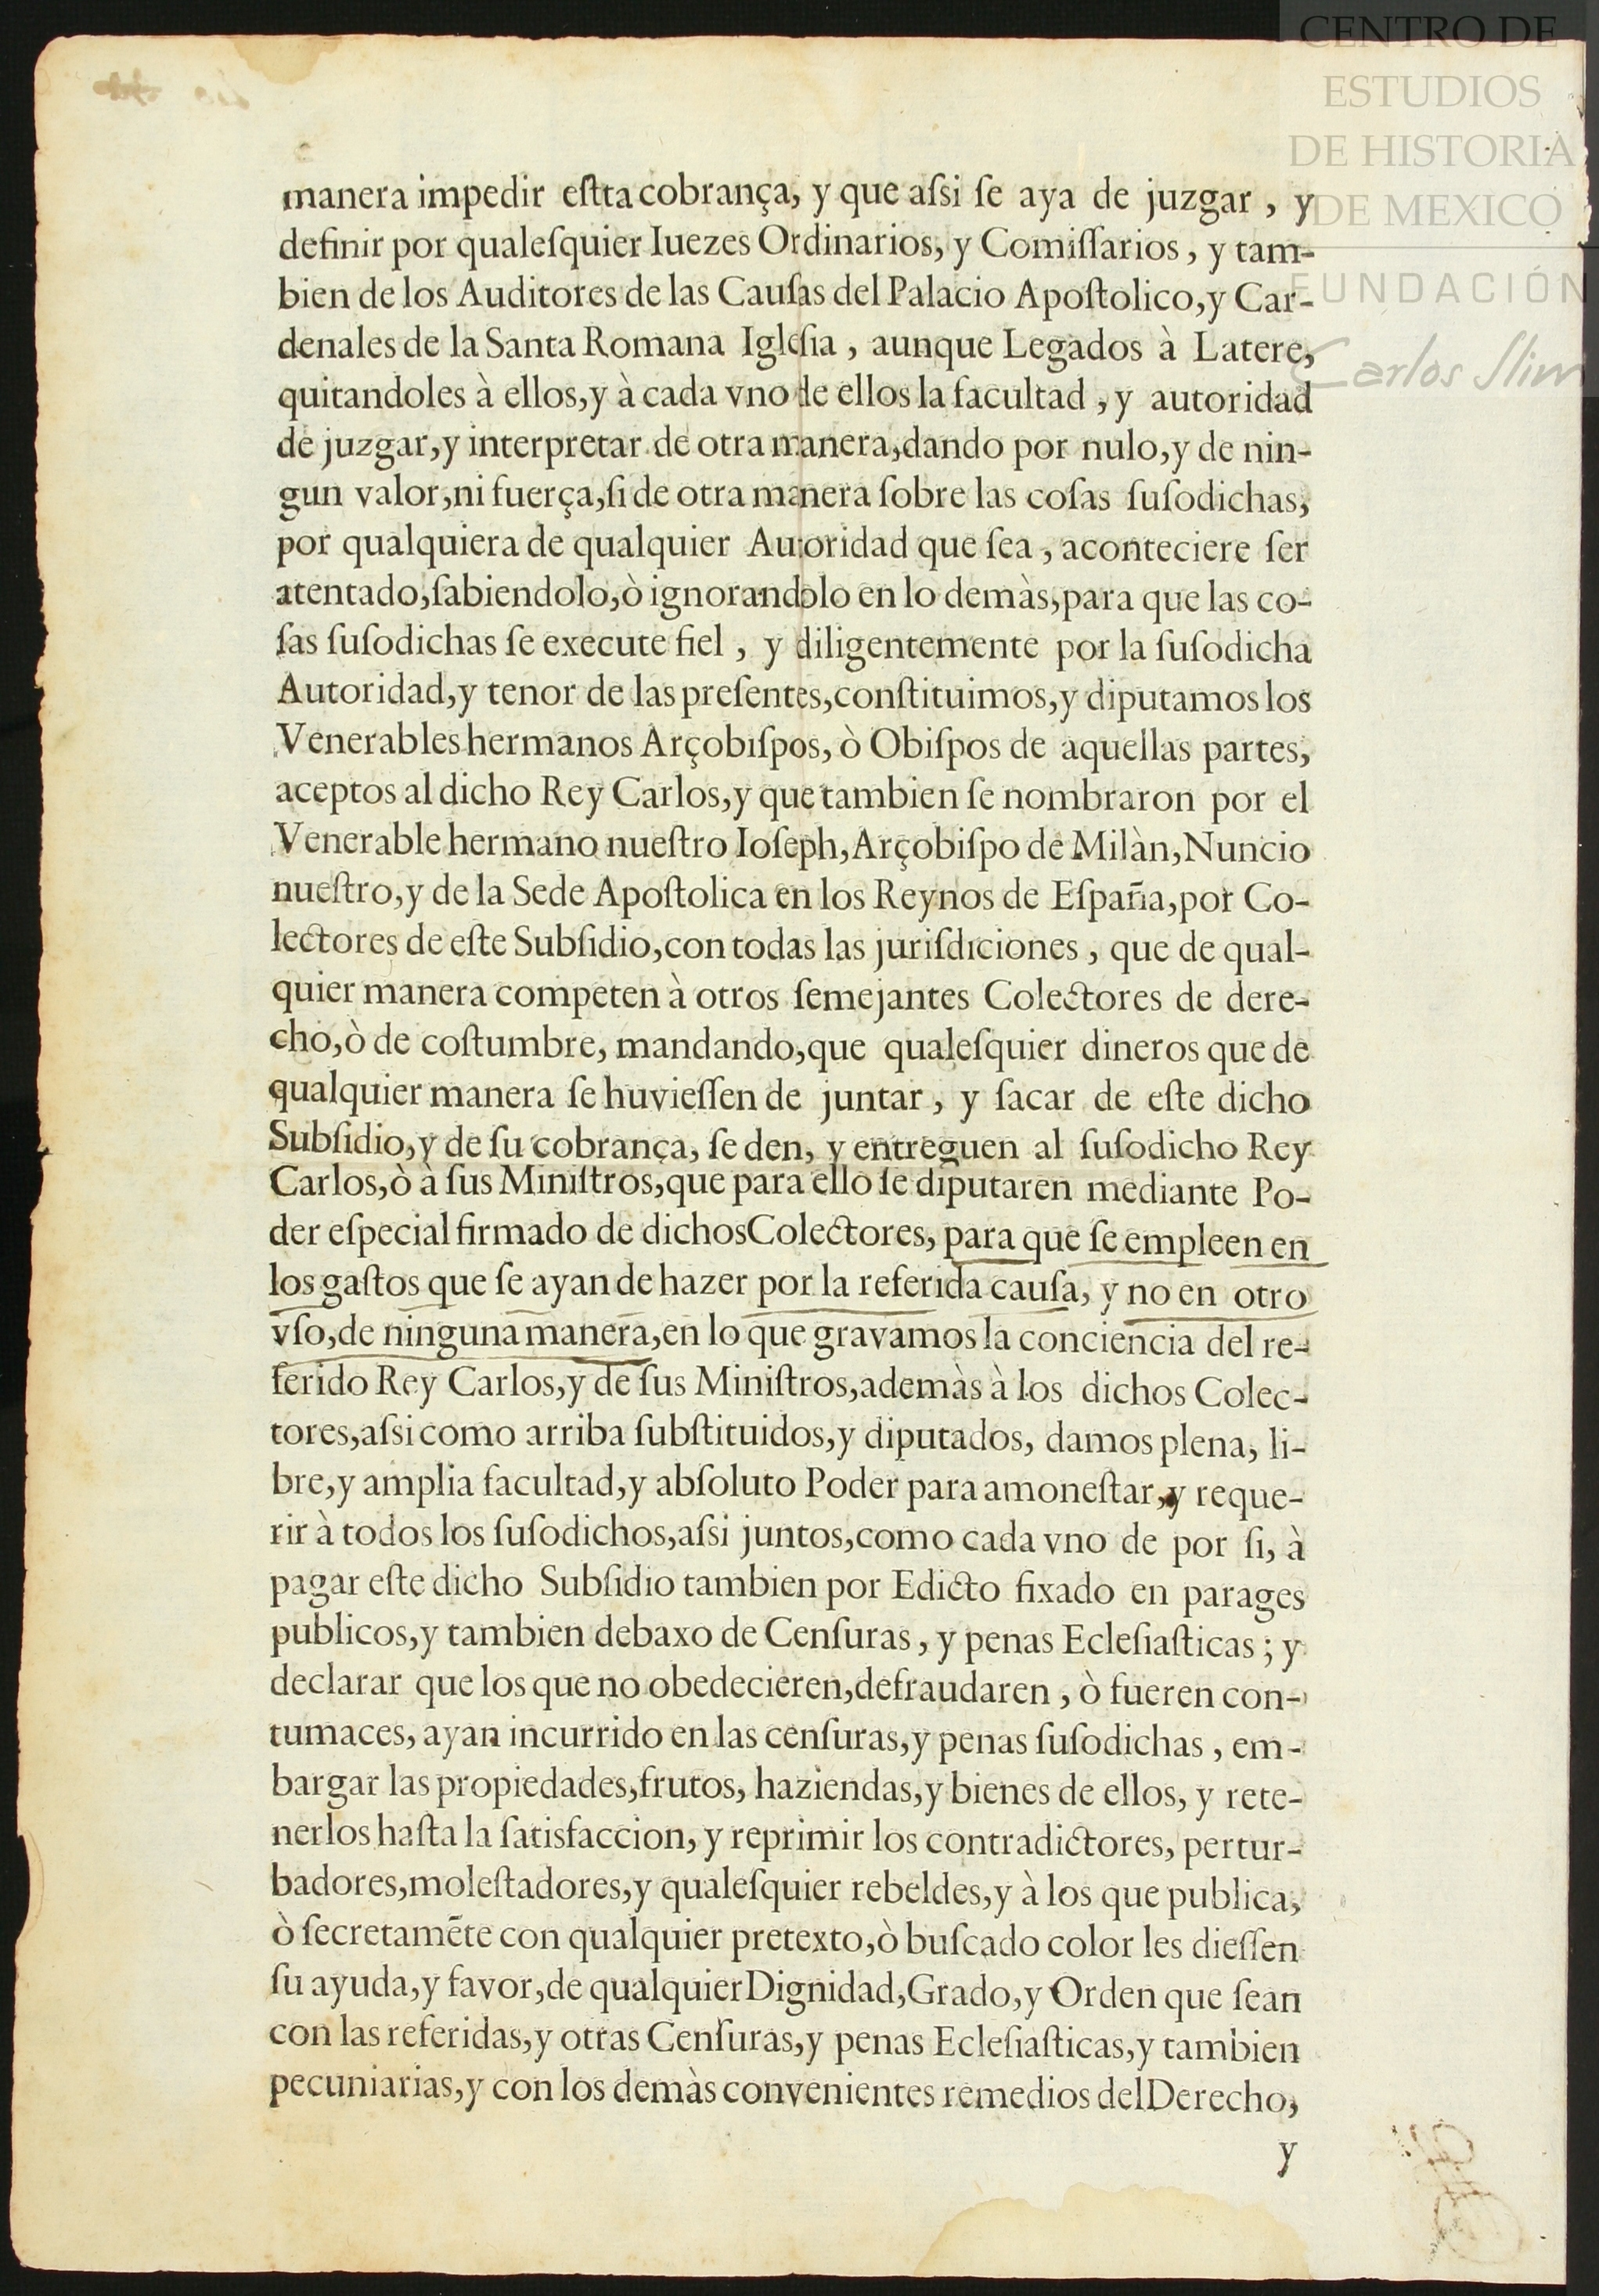 CENTRO DE
ESTUDIOS
DE HISTORIA
DE MEXICO
FUNDACIÓN
Carlos Slim
manera impedir eſtta cobrança, y que aſsi ſe aya de juzgar, y
definir por qualeſquier Iuezes Ordinarios, y Comiſſarios, y tam-
bien de los Auditores de las Cauſas del Palacio Apoſtolico, y Car-
denales de la Santa Romana Igleſia, aunque Legados à Latere,
quitandoles à ellos, y à cada vno de ellos la facultad, y autoridad
de juzgar, y interpretar de otra manera, dando por nulo, y de nin-
gun valor, ni fuerça, ſi de otra manera ſobre las coſas ſuſodichas,
por qualquiera de qualquier Autoridad que ſea, aconteciere ſer
atentado, ſabiendolo, ò ignorandolo en lo demàs, para que las co-
ſas ſuſodichas ſe execute fiel, y diligentemente por la ſuſodicha
Autoridad, y tenor de las preſentes, conſtituimos, y diputamos los
Venerables hermanos Arçobiſpos, ò Obiſpos de aquellas partes,
aceptos al dicho Rey Carlos, y que tambien ſe nombraron por el
Venerable hermano nueſtro Ioſeph, Arçobiſpo de Milàn, Nuncio
nueſtro, y de la Sede Apoſtolica en los Reynos de Eſpaña, por Co-
lectores de eſte Subſidio, con todas las juriſdiciones, que de qual-
quier manera competen à otros ſemejantes Colectores de dere-
cho, ò de coſtumbre, mandando, que qualeſquier dineros que de
qualquier manera ſe huvieſſen de juntar, y ſacar de eſte dicho
Subſidio, y de ſu cobrança, ſe den, y entreguen al ſuſodicho Rey
Carlos, ò à ſus Miniſtros, que para ello ſe diputaren mediante Po-
der eſpecial firmado de dichos Colectores, para que ſe empleen en
los gaſtos que ſe ayan de hazer por la referida cauſa, y no en otro
vſo, de ninguna manera, en lo que gravamos la conciencia del re-
ferido Rey Carlos, y de ſus Miniſtros, ademàs à los dichos Colec-
tores, aſsi como arriba ſubſtituidos, y diputados, damos plena, li-
bre, y amplia facultad, y abſoluto Poder para amoneſtar, y reque-
rir à todos los ſuſodichos, aſsi juntos, como cada vno de por ſi, à
pagar eſte dicho Subſidio tambien por Edicto fixado en parages
publicos, y tambien debaxo de Cenſuras, y penas Ecleſiaſticas; y
declarar que los que no obedecieren, defraudaren, ò fueren con-
tumaces, ayan incurrido en las cenſuras, y penas ſuſodichas, em-
bargar las propiedades, frutos, haziendas, y bienes de ellos, y rete-
nerlos haſta la ſatisfaccion, y reprimir los contradictores, pertur-
badores, moleſtadores, y qualeſquier rebeldes, y à los que publica,
ò ſecretamēte con qualquier pretexto, ò buſcado color les dieſſen
ſu ayuda, y favor, de qualquier Dignidad, Grado, y Orden que ſean
con las referidas, y otras Cenſuras, y penas Ecleſiaſticas, y tambien
pecuniarias, y con los demàs convenientes remedios del Derecho,
y